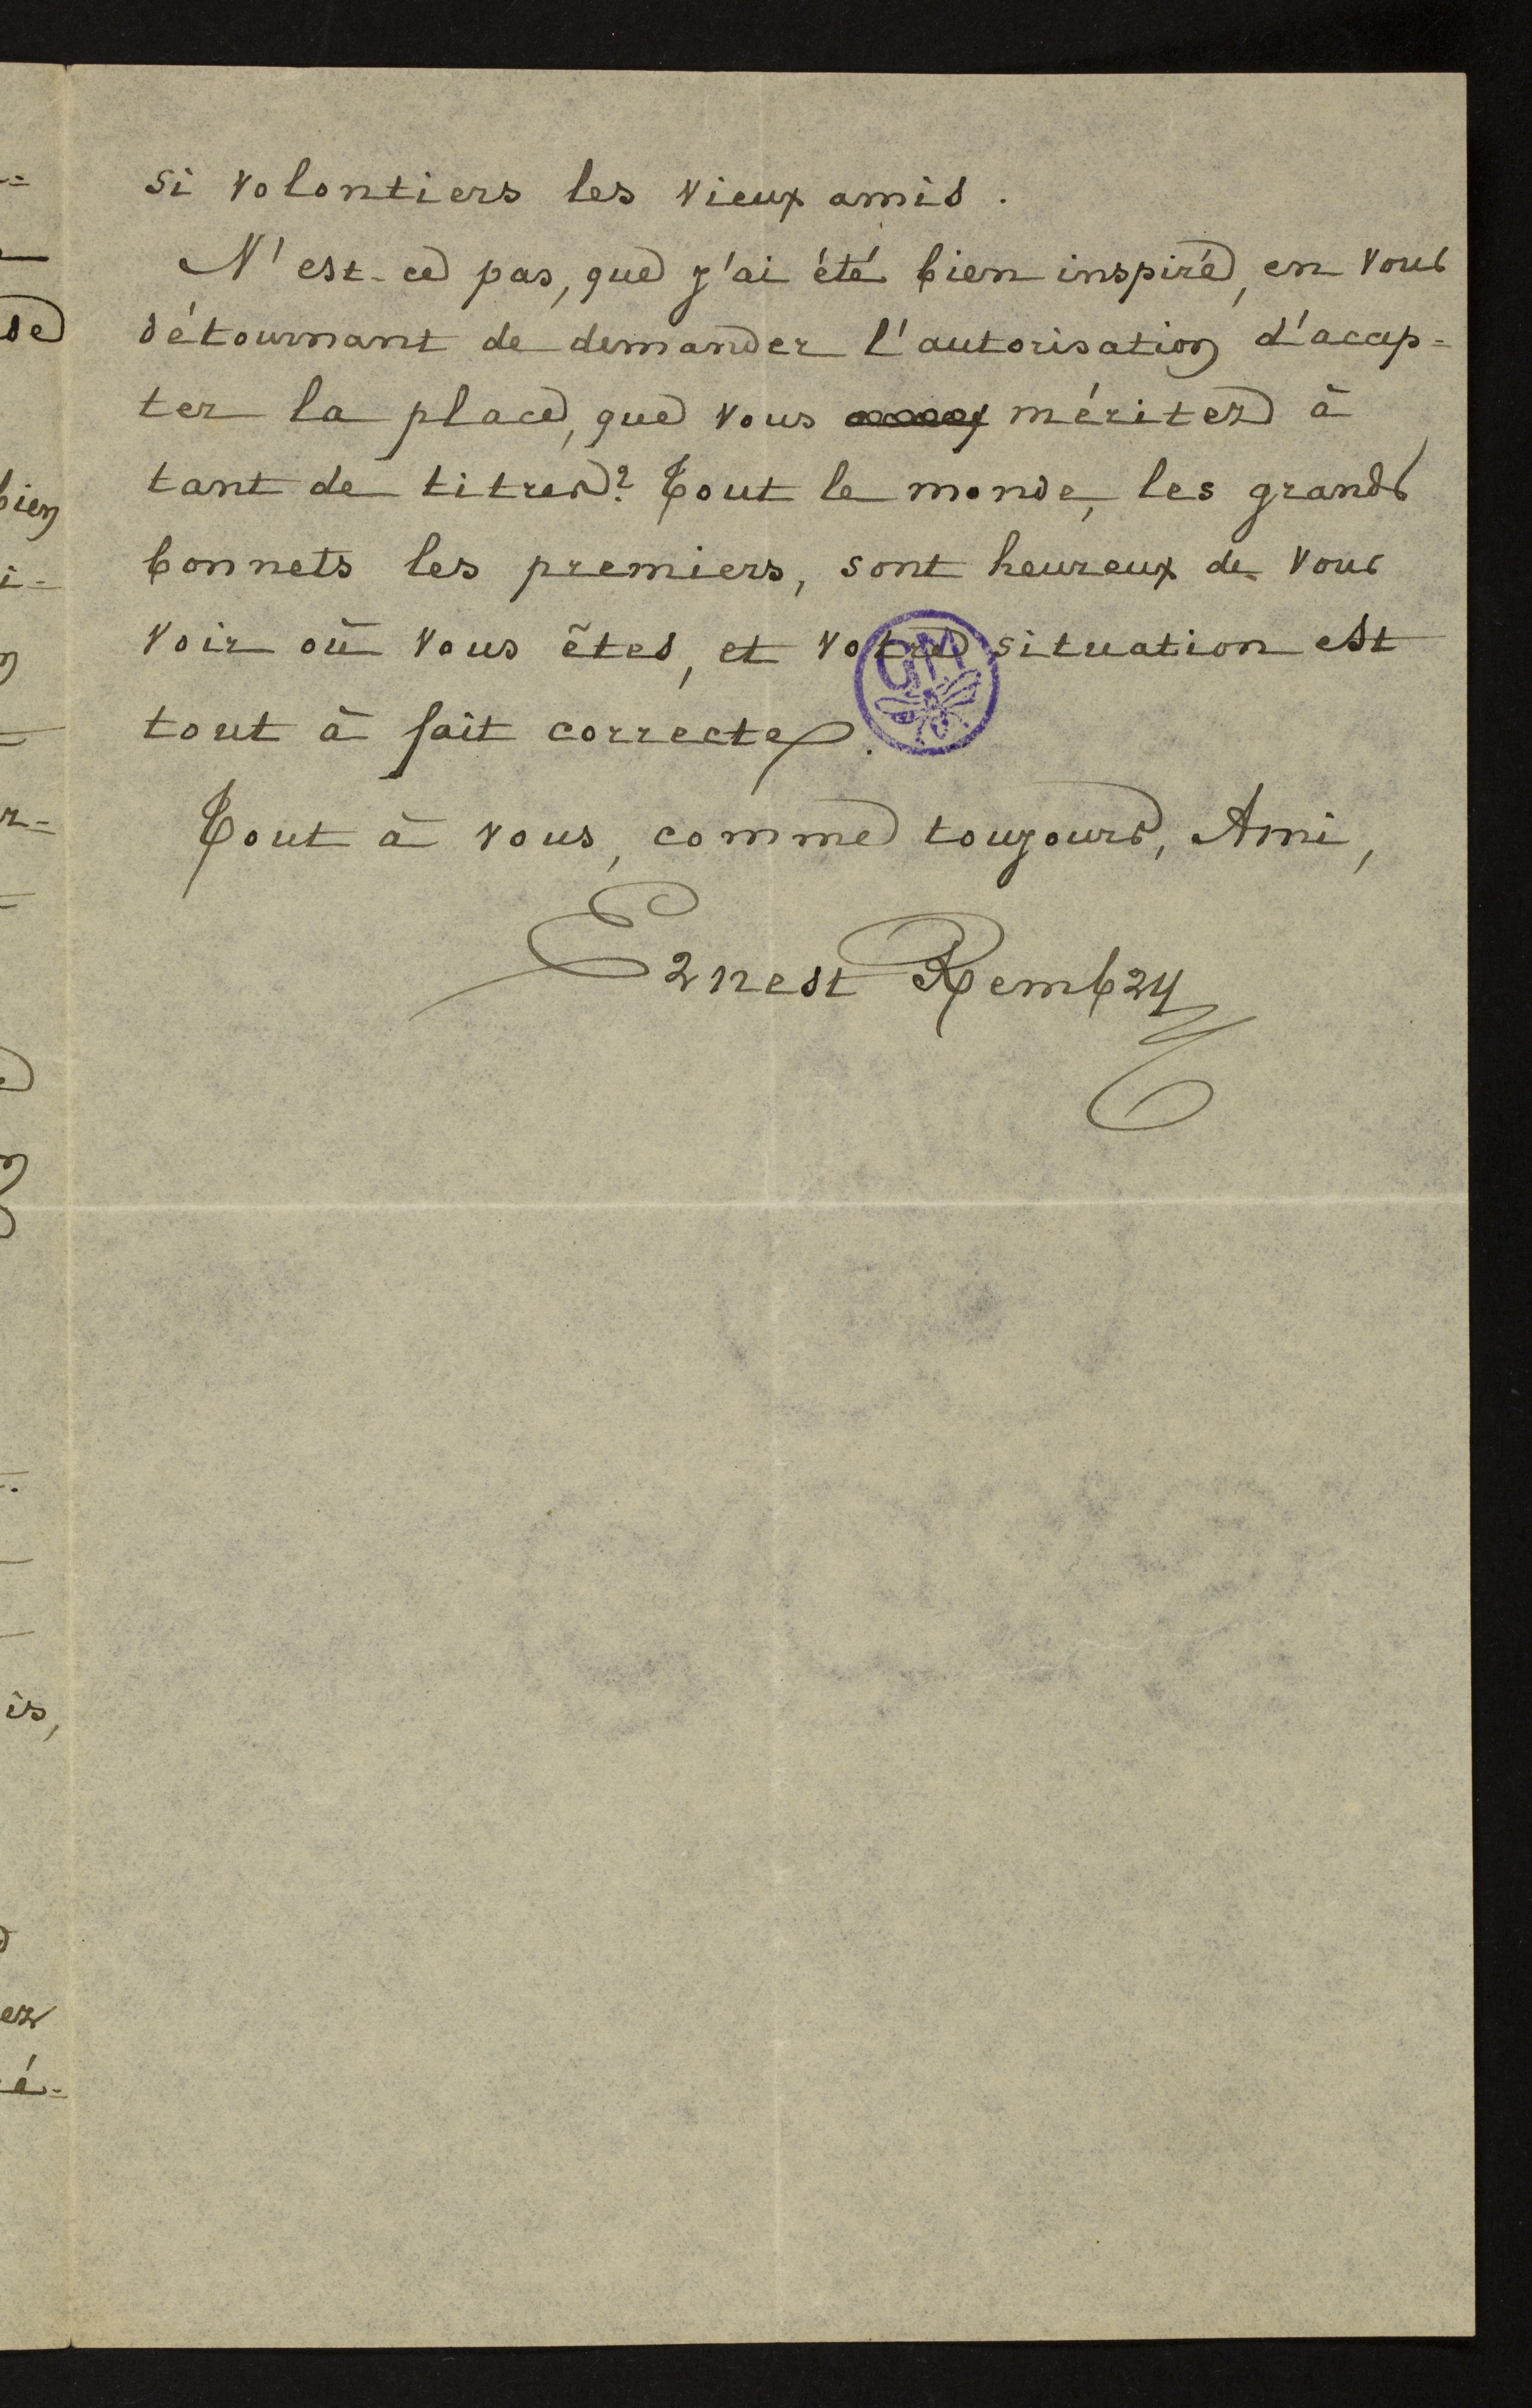 si volontiers les vieux amis.
N'est-ce pas, que j'ai été bien inspiré, en vous
détournant de demander l'autorisation d'accep=
ter la place, que vous méritez à
tant de titres? Tout le monde, les grands
bonnets les premiers, sont heureux de vous
voir où vous êtes, et votre situation est
tout à fait correcte.
GM
Tout à vous, comme toujours, Ami,
Ernest Rembry
se
bien
i=
r=
is,
ez
é=